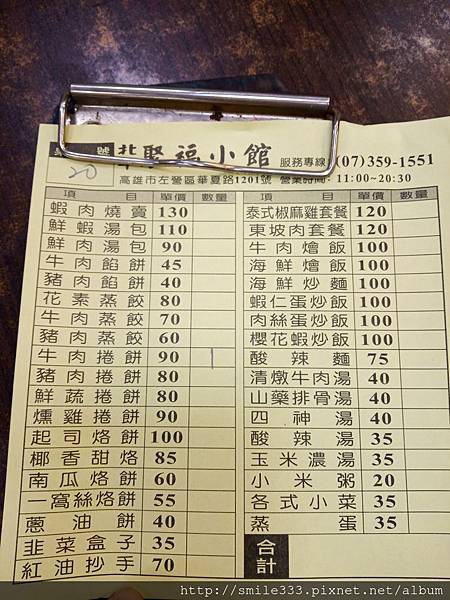 號 20
北聚福小館 服務專線 (07)359-1551
高雄市左營區華夏路1201號 營業時間 11:00~20:30
項 目 單價 數量
蝦肉燒賣 130
鮮蝦湯包 110
鮮肉湯包 90
牛肉餡餅 45
豬肉餡餅 40
花素蒸餃 80
牛肉蒸餃 70
豬肉蒸餃 60
牛肉捲餅 90 1
豬肉捲餅 80
鮮蔬捲餅 80
燻雞捲餅 90
起司烙餅 100
椰香甜烙 85
南瓜烙餅 60
一窩絲烙餅 55
蔥油餅 40
韭菜盒子 35
紅油抄手 70
項 目 單價 數量
泰式椒麻雞套餐 120
東坡肉套餐 120
牛肉燴飯 100
海鮮燴飯 100
海鮮炒麵 100
蝦仁蛋炒飯 100
肉絲蛋炒飯 100
櫻花蝦炒飯 100
酸辣麵 75
清燉牛肉湯 40
山藥排骨湯 40
四神湯 40
酸辣湯 35
玉米濃湯 35
小米粥 20
各式小菜 35
蒸蛋 35
合計
http://smile333.pixnet.net/album